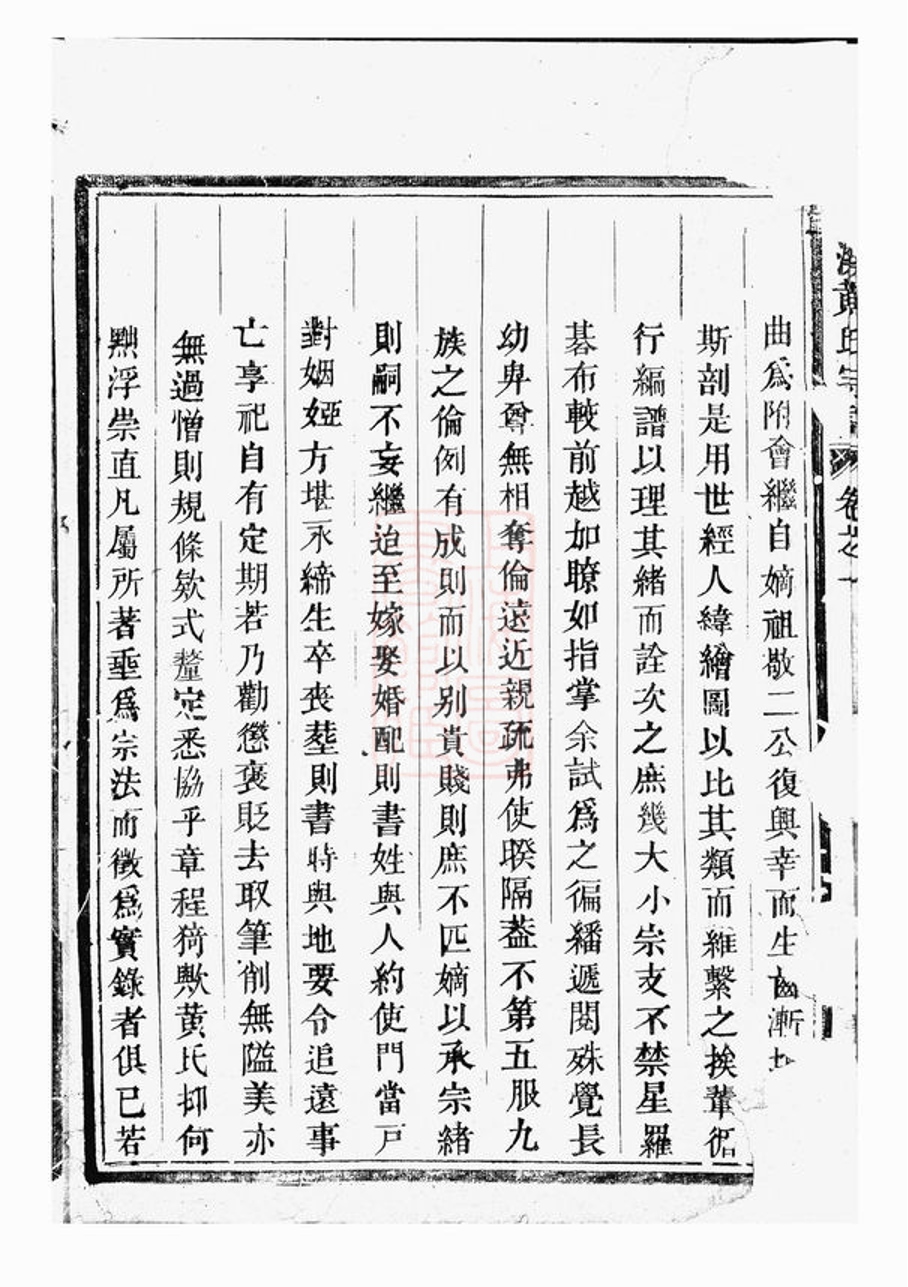 黃氏宗譜 卷之一
曲爲附會繼自嫡祖敬二公復興幸而生齒漸
斯剖是用世經人緯繪圖以比其類而維繫之挨輩循
行編譜以理其緒而詮次之庶幾大小宗支不禁星羅
棊布較前越如瞭如指掌余試爲之徧繙遞閱殊覺長
幼卑尊無相奪倫遠近親疏弗使暌隔葢不第五服九
族之倫例有成則而以别貴賤則庶不匹嫡以承宗緒
則嗣不妄繼迨至嫁娶婚配則書姓與人約使門當戸
對姻婭方堪永締生卒丧塟則書時與地要令追遠事
亡享祀自有定期若乃勸懲褒貶去取筆削無隘美亦
無過憎則規條欵式釐定悉協乎章程猗歟黄氏抑何
黜浮崇直凡屬所著埀爲宗法而徵爲實錄者俱已若